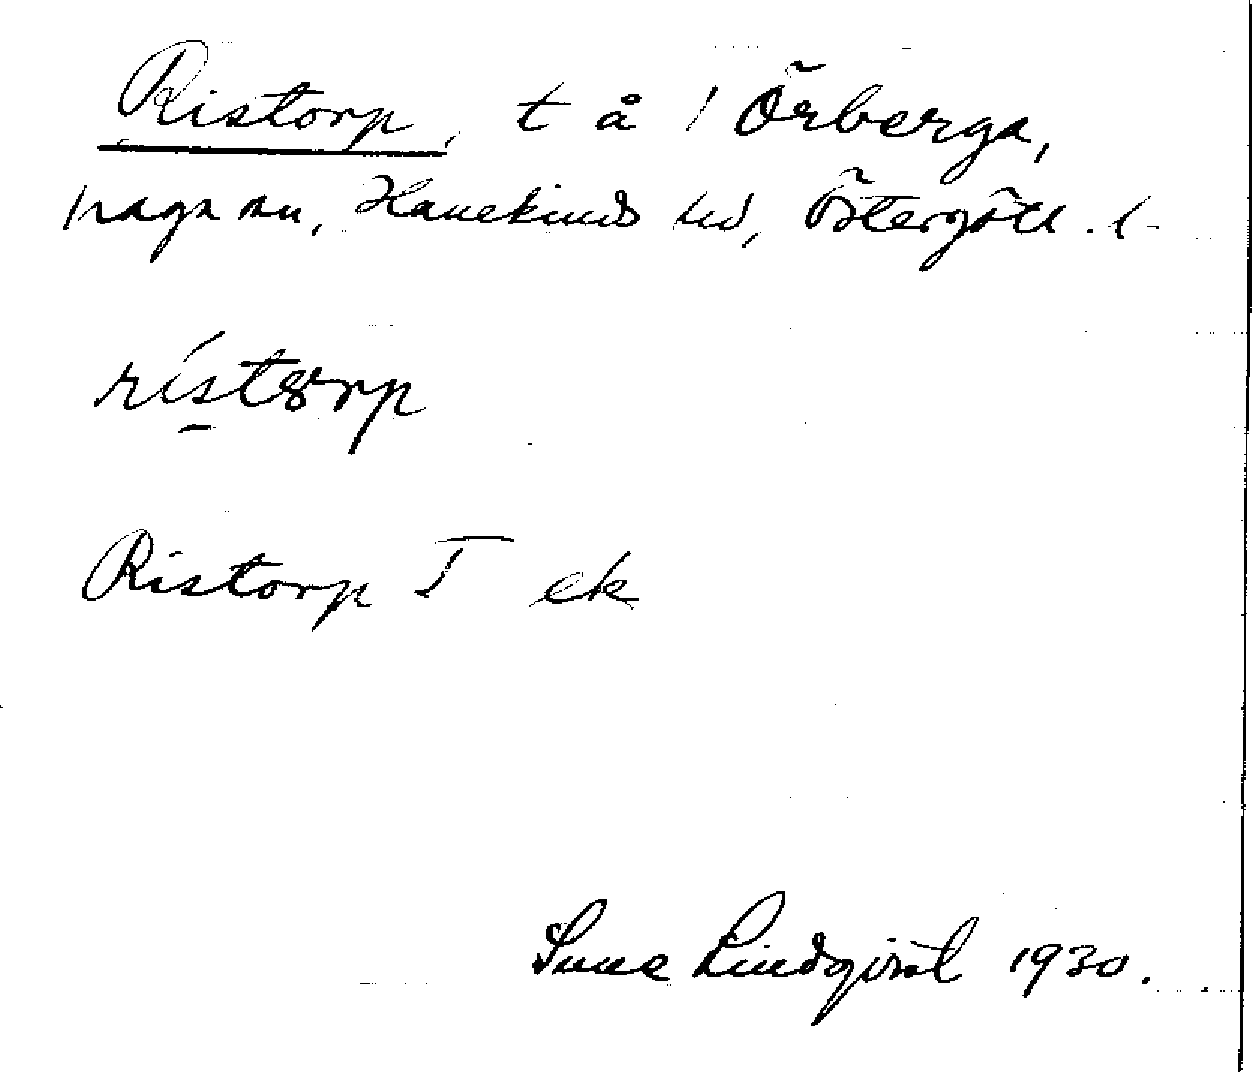 Ristorp, t å / Örberga,
Kaga sn, Hanekinds hd, Östergötl. l.
ristørp
Ristorp T ek
Sune Lindqvist 1930.